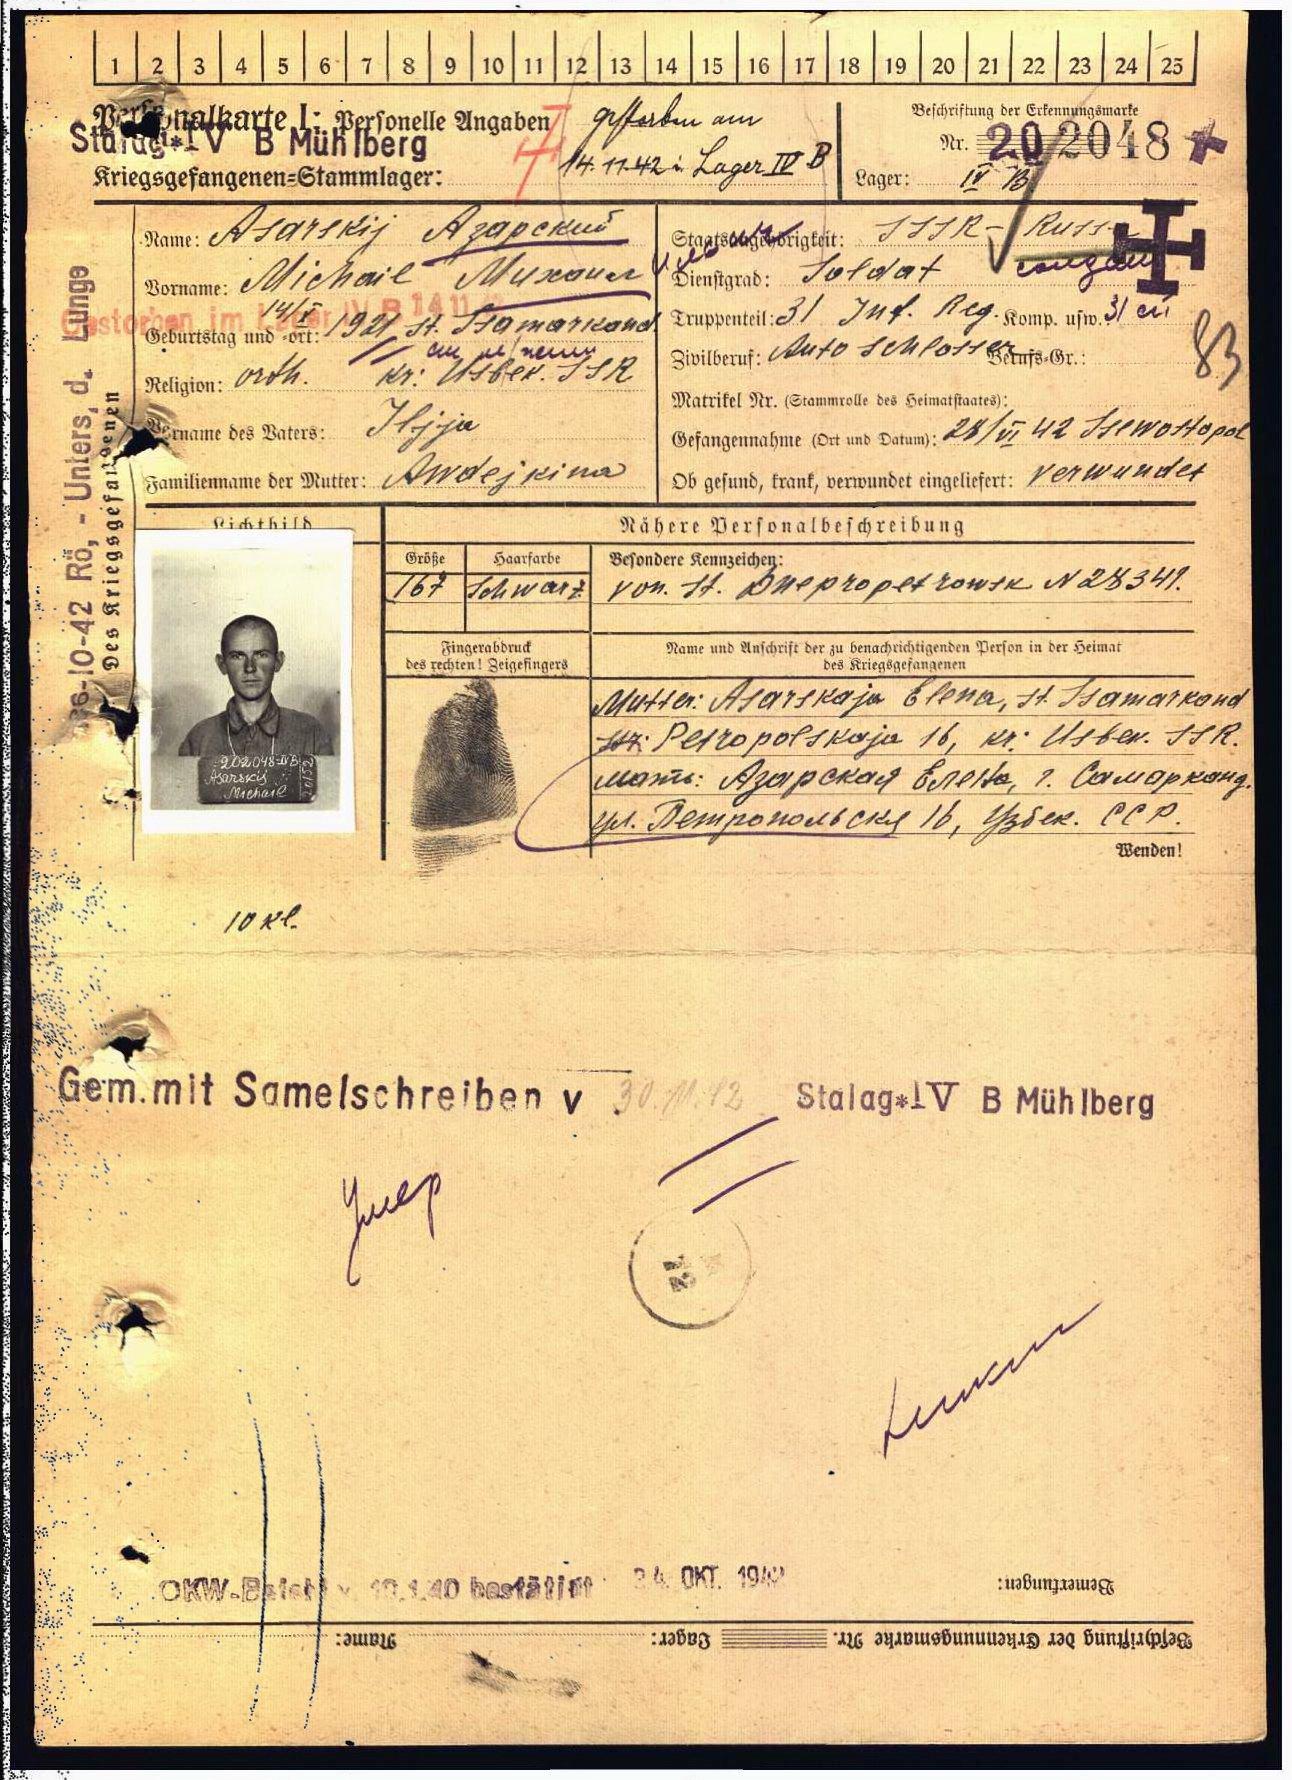 1 2 3 4 5 6 7 8 9 10 11 12 13 14 15 16 17 18 19 20 21 22 23 24 25
Personalkarte I: Personelle Angaben
Stalag*IV B Mühlberg
Kriegsgefangenen=Stammlager:
gestorben am
14.11.42 i. Lager IV B
Beschriftung der Erkennungsmarke
Nr. 202048
Lager: IV B
Name: Asarskij Азарский
Vorname: Michail Михаил
Gestorben im Lager IV B 14 11
Geburtstag und -ort: 14/V 1921 st. Ssamarkand
Religion: orth. kr: Usbek. SSR
Vorname des Vaters: Iljja
Familienname der Mutter: Awdejkina
Staatsangehörigkeit: SSSR - Russ
Dienstgrad: Soldat солдат
Truppenteil: 31 Inf. Reg. Komp. usw. 31 сп
Zivilberuf: Autoschlosser Berufs=Gr.:
83
Matrikel Nr. (Stammrolle des Heimatstaates):
Gefangennahme (Ort und Datum): 28/VI 42 Ssewostopol
Ob gesund, krank, verwundet eingeliefert: verwundet
26-10-42 Rö,- Unters, d. Lunge
Des Kriegsgefangenen
Lichtbild
Nähere Personalbeschreibung
Größe Haarfarbe Besondere Kennzeichen:
167 Schwarz von. St. Dnepropetrowsk N 28341.
Fingerabdruck
des rechten! Zeigefingers
Name und Anschrift der zu benachrichtigenden Person in der Heimat
des Kriegsgefangenen
Mutter: Asarskaja Elena, st. Ssamarkand
str: Petropolskaja 16, kr: Usbek. SSR.
мать: Азарская Елена, г. Самарканд.
ул. Петропольская 16, Узбек. ССР.
Wenden!
202048-IVB
Asarskij
Michail
10 kl.
Gem. mit Samelschreiben v 30.11.42 Stalag*IV B Mühlberg
Умер
22
OKW-Befehl v 10.1.40 bestätigt 24. OKT. 1942
Bemerkungen:
Beschriftung der Erkennungsmarke Nr. Lager: Name: